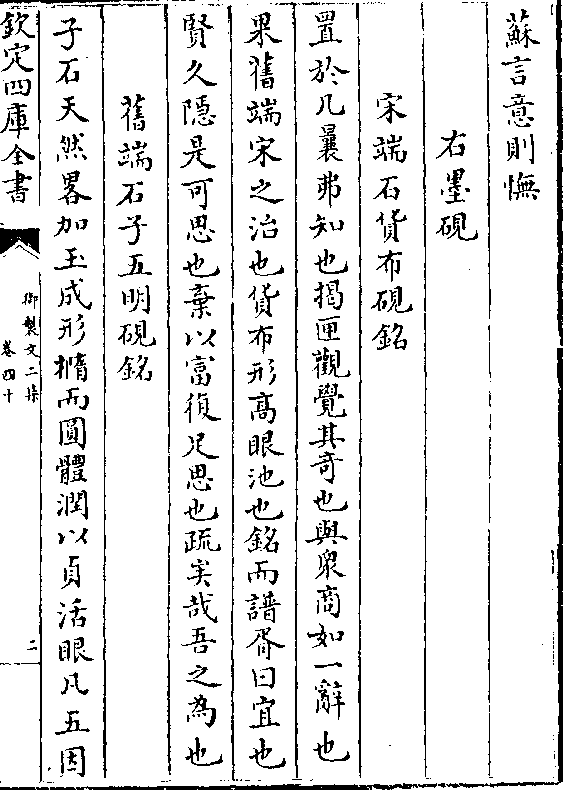 蘇言意則憮
右墨硯
宋端石貨布硯銘
置於几曩弗知也揭匣觀覺其奇也與衆商如一辭也
果舊端宋之治也貨布形高眼池也銘而譜胥曰宜也
賢久隱是可思也棄以富復足思也疏矣哉吾之為也
舊端石子五明硯銘
子石天然畧加玉成形橢而圓體潤以貞活眼凡五因
欽定四庫全書
御製文二集
卷四十
二